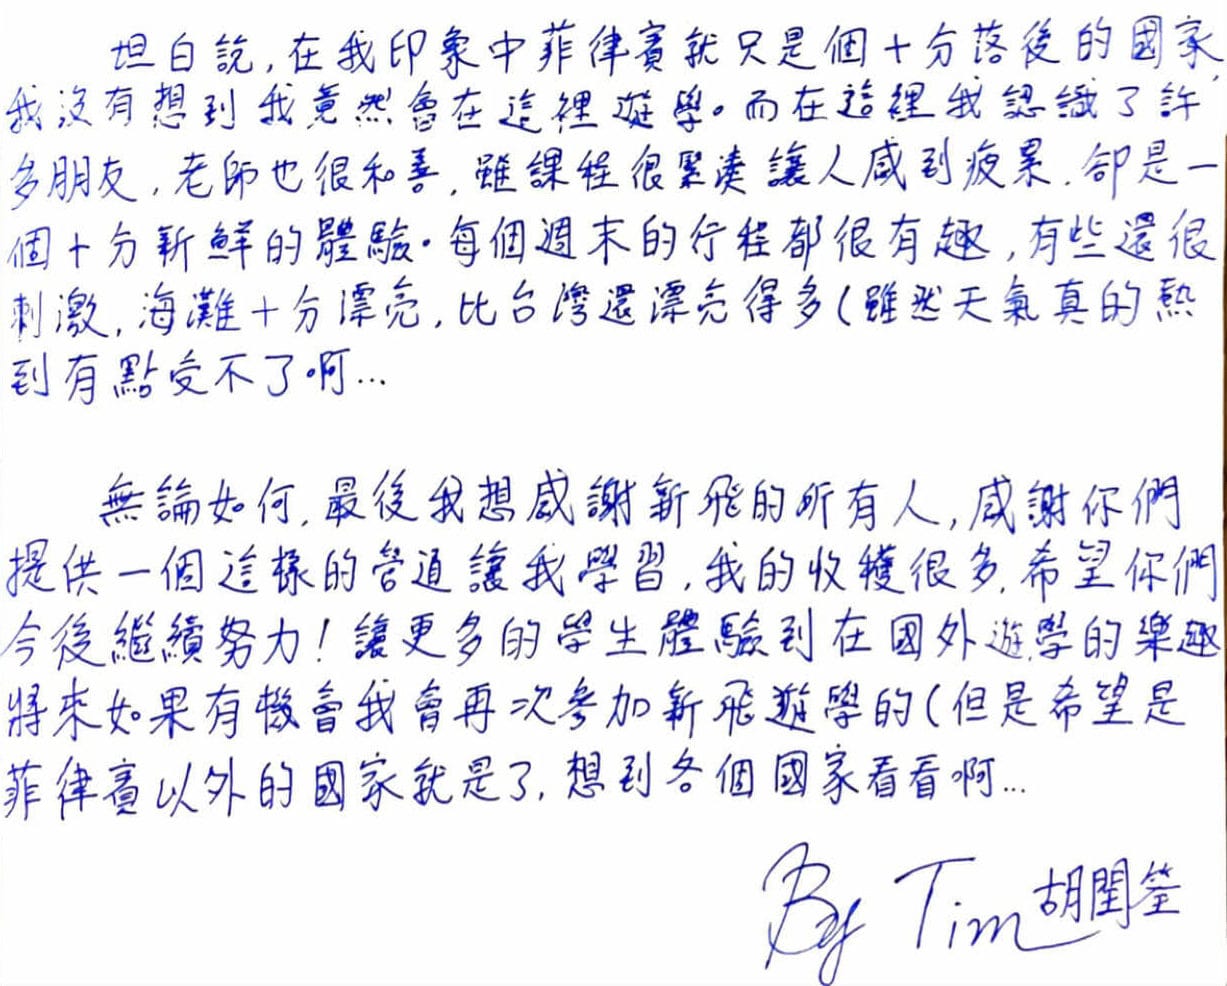 坦白說,在我印象中菲律賓就只是個十分落後的國家,
我沒有想到我竟然會在這裡遊學。而在這裡我認識了許
多朋友,老師也很和善,雖課程很緊湊讓人感到疲累,卻是一
個十分新鮮的體驗。每個週末的行程都很有趣,有些還很
刺激,海灘十分漂亮,比台灣還漂亮得多(雖然天氣真的熱
到有點受不了啊...
無論如何,最後我想感謝新飛的所有人,感謝你們
提供一個這樣的管道讓我學習,我的收穫很多,希望你們
今後繼續努力!讓更多的學生體驗到在國外遊學的樂趣
將來如果有機會我會再次參加新飛遊學的(但是希望是
菲律賓以外的國家就是了,想到各個國家看看啊...
By Tim 胡閏筌